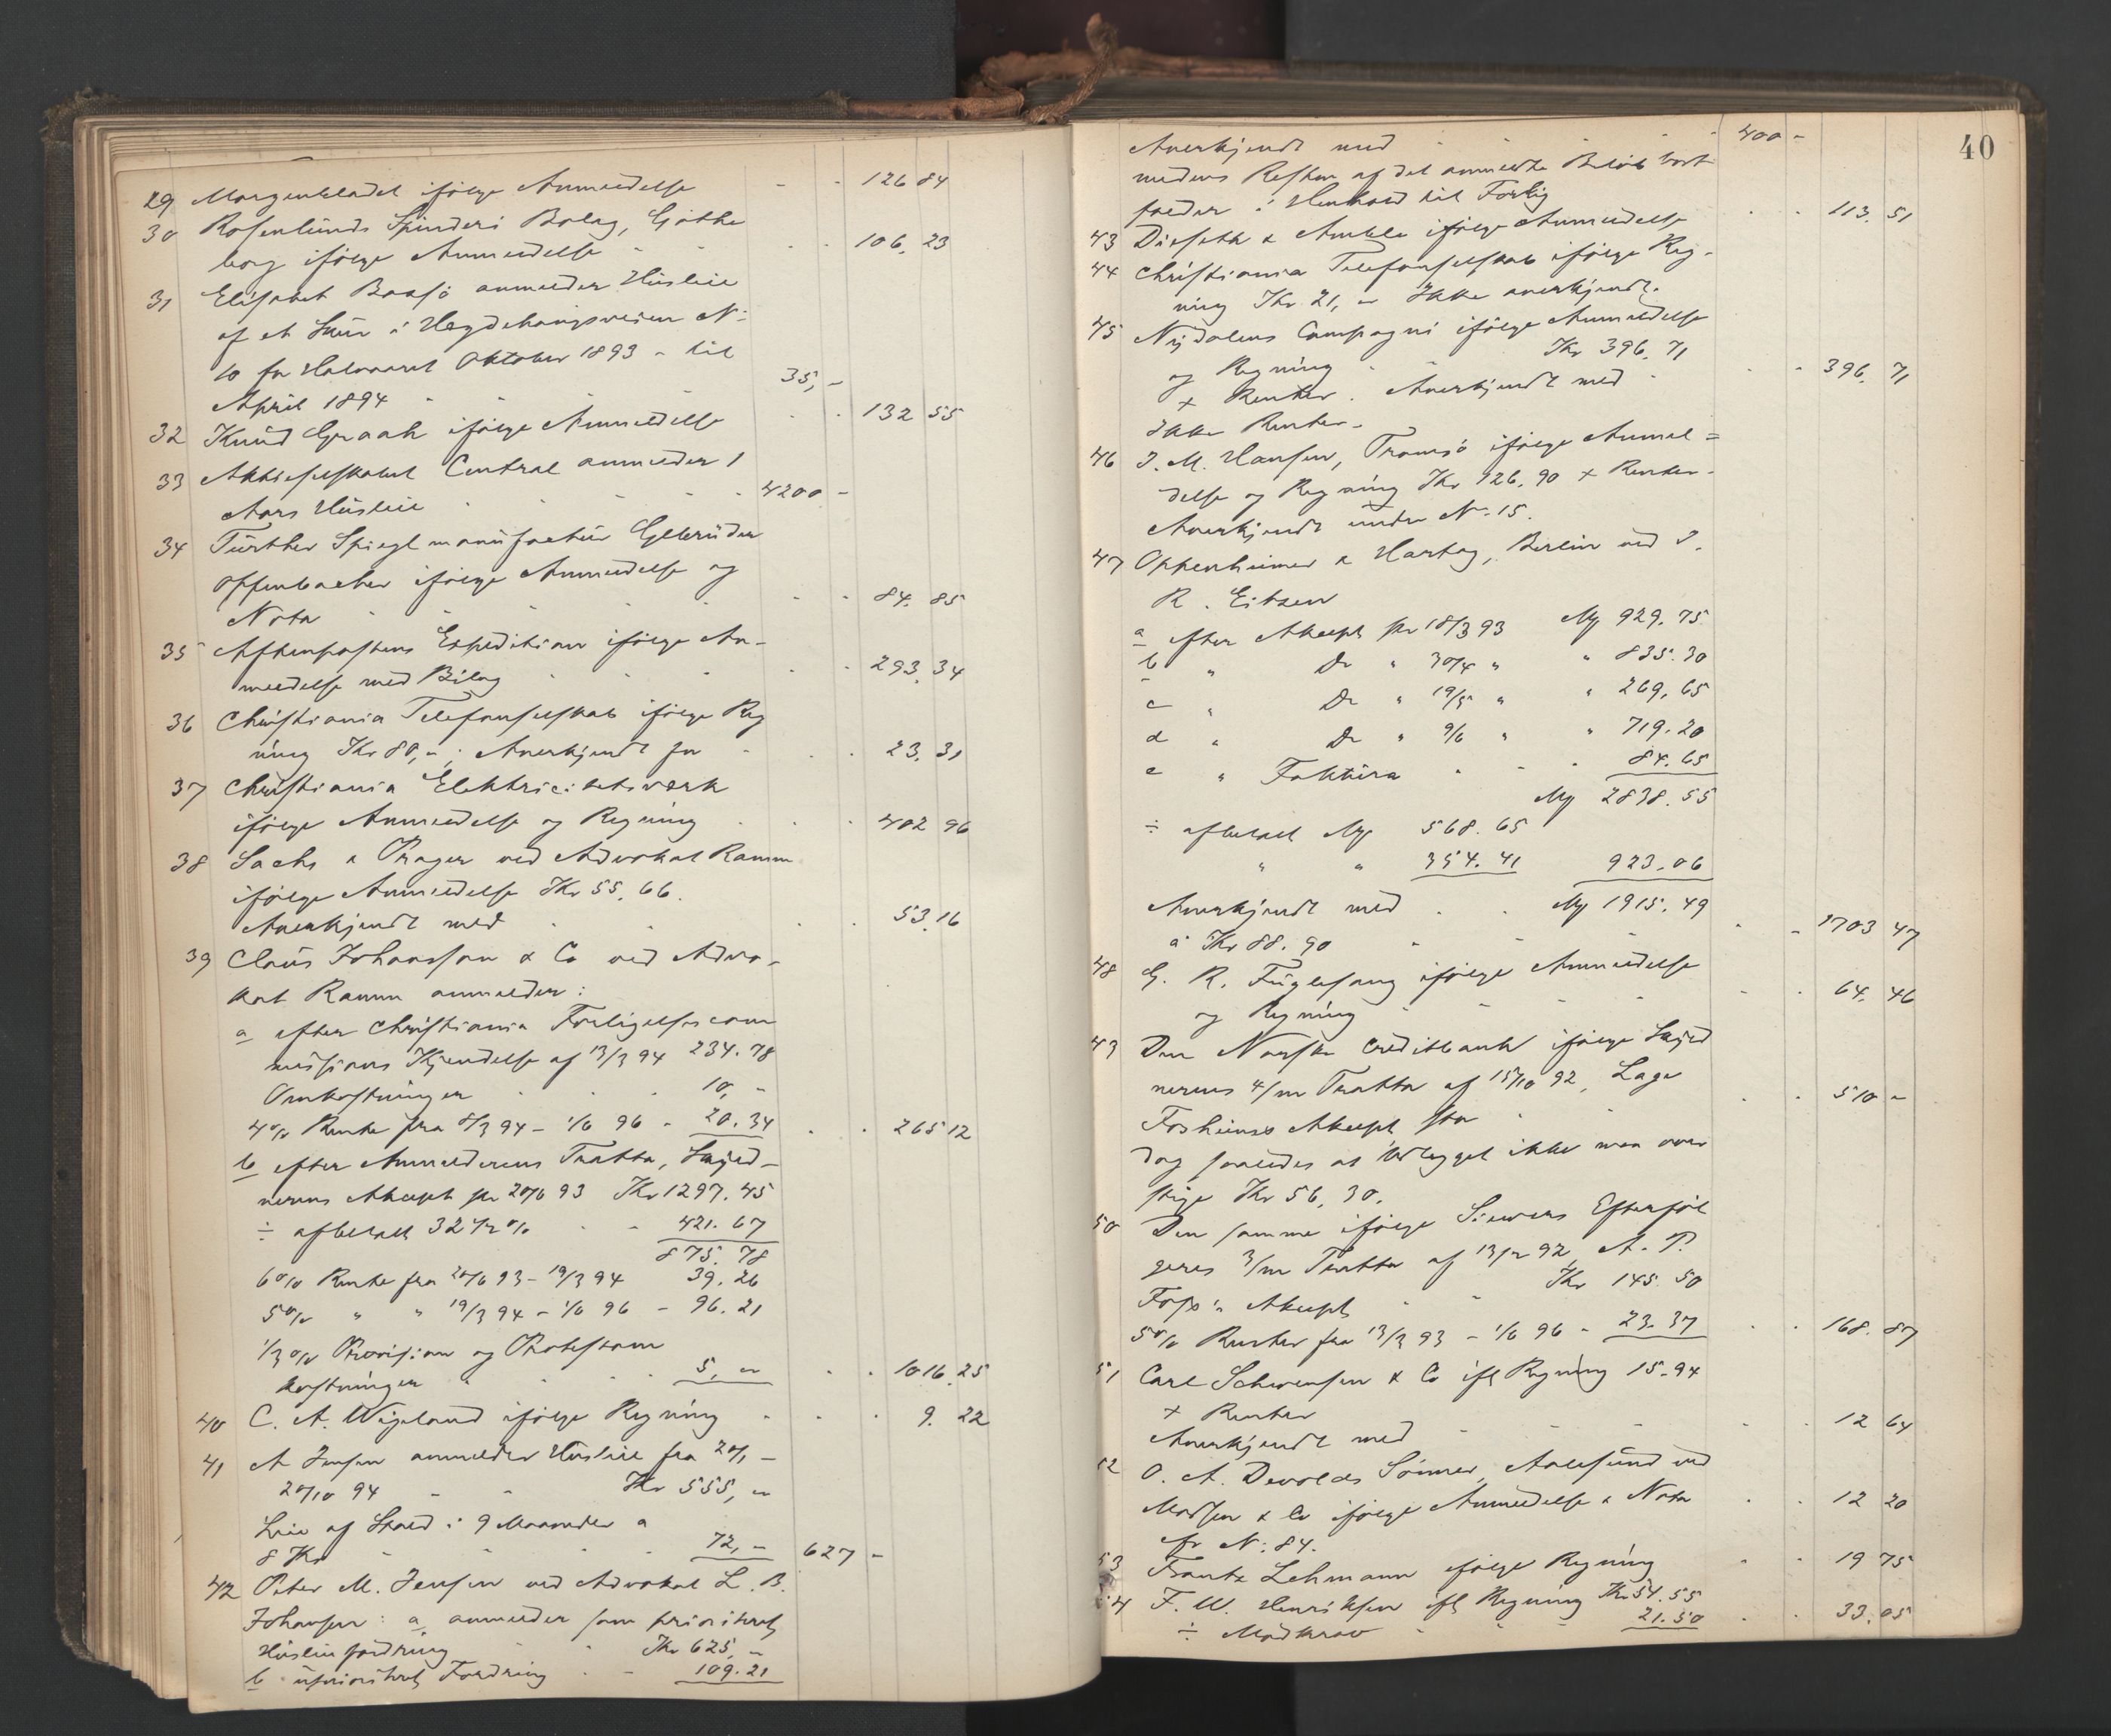 29 Morgenbladet ifølge Anmeldelse - - 126 84
30 Rosenlunds Spinderi Bolag, Gøthe
borg ifølge Anmeldelse - - 106. 23
31 Elisabet Boasö anmelder Husleie
af et Skur i Hegdehaugsveien N:
10 for Halvaaret Oktober 1893 - til
April 1894 - - 35,-
32 Knud Graah ifølge Anmeldelse - - 132 55
33 Aktieselskabet Central anmelder 1
Aars Husleie - - 4200 -
34 Fürther Spieglmanufactur Gebrüder
Offenbacher ifølge Anmeldelse og
Nota - - 84. 85
35 Aftenpostens Expedition ifølge An-
meldelse med Bilag - - 293. 34
36 Christiania Telefonselskab ifølge Reg
ning Kr 80,-; Anerkjendt for - - 23. 31
37 Christiania Elektricitetsværk
ifølge Anmeldelse og Regning - - 402 96
38 Sachs & Prager ved Advokat Ramm
ifølge Anmeldelse Kr 55. 66.
Anerkjendt med - - 53. 16
39 Claus Johansson & Co ved Advo-
kat Ramm anmelder:
a efter Christiania Forligelsescom
missions Kjendelse af 13/3 94 234. 78
Omkostninger - - 10, -
4% Rente fra 8/3 94 - 1/6 96 - 20. 34 - - 265 12
b efter Anmelderens Tratta, Skyld-
nerens Akcept pr 20/6 93 Kr 1297. 45
÷ afbetalt 32 1/2 % - - 421. 67
875. 78
6% Rente fra 20/6 93 - 19/3 94 39. 26
5% " " 19/3 94 - 1/6 96 - 96. 21
1/3 % Provision og Protestom
kostninger - - 5, - - - 1016. 25
40 C. A. Wigeland ifølge Regning - - 9. 22
41 A Jensen anmelder Husleie fra 20/1 -
20/10 94 - - Kr 555, -
Leie af Stald i 9 Maaneder a
8 Kr - - 72, - 627 -
42 Peter M. Jensen ved Advokat L. B.
Johansen: a, anmelder som prioritert
Husleiefordring Kr 625, -
b uprioritert Fordring - - 109. 21
40
Anerkjendt med - - 400 -
medens Resten af det anmeldte Beløb bort
falder i Henhold til Forlig
43 Duseth & Amble ifølge Anmeldelse - - 113. 51
44 Christiania Telefonselskab ifølge Reg-
ning Kr 21, - Ikke anerkjendt.
45 Nydalens Compagni ifølge Anmeldelse
og Regning - - Kr 396. 71
+ Renter. Anerkjendt med - - 396. 71
Ikke Renter.
46 J. M. Hansen, Tromsö ifølge Anmel=
delse og Regning Kr 126. 90 + Renter.
Anerkjendt under N. 15.
47 Oppenheimer & Hartog, Berlin ved J.
R. Eitzen
a efter Akcept pr 18/3 93 Mg 929. 75
b " Do " 30/4 " " 835. 30
c " Do " 19/5 " " 269. 65
d " Do " 9/6 " " 719. 20
e " Faktura - - 84. 65
Mg 2838. 55
÷ afbetalt Mg 568. 65
" " 354. 41 923. 06
Anerkjendt med - - Mg 1915. 49
a Kr 88. 90 - - 1703 47
48 G. R. Fuglesang ifølge Anmeldelse
og Regning - - 64. 46
49 Den Norske Creditbank ifølge Skyld
nerens 4/m Tratta af 15/10 92, Lage
Fosheims Akcept stor - - 510 -
dog saaledes at Udlægget ikke maa over
stige Kr 56. 30.
50 Den samme ifølge Siewers Efterføl
geres 3/m Tratta af 13/12 92, A. P.
Foss's Akcept - - Kr 145. 50
5% Renter fra 13/3 93 - 1/6 96 - 23. 37 - - 168. 87
51 Carl Schwensen & Co ifl Regning 15. 94
+ Renter
Anerkjendt med - - 12 64
52 O. A. Devolds Sönner, Aalesund ved
Madsen & Co ifølge Anmeldelse & Nota - - 12 20
cfr N: 84.
53 Frantz Lehmann ifølge Regning - - 19 75
54 F. W. Henriksen ifl Regning Kr 54. 55
÷ Modkrav - - 21. 50 - - 33. 05